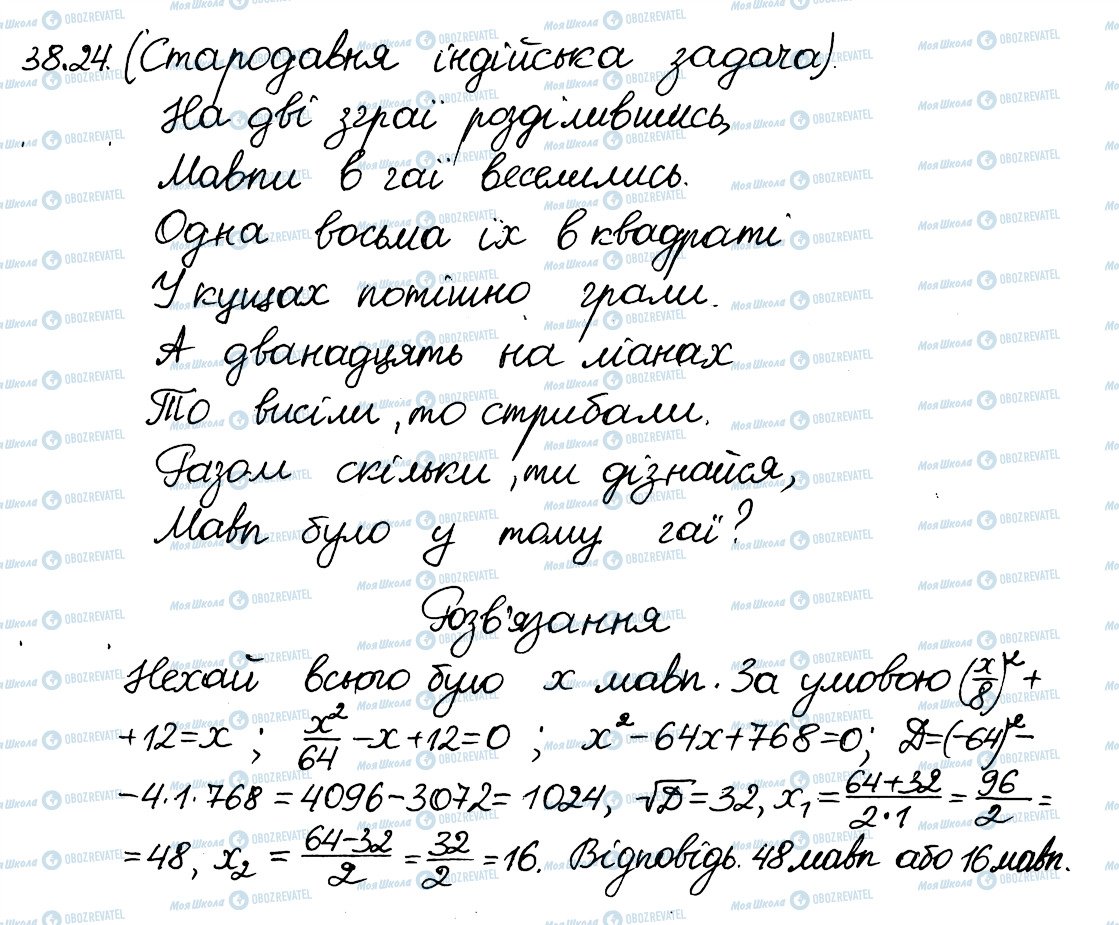 38.24. (Стародавня індійська задача).
На дві зграї розділившись,
Мавпи в гаї веселились.
Одна восьма їх в квадраті
У кущах потішно грали.
А дванадцять на ліанах
То висіли, то стрибали.
Разом скільки, ти дізнайся,
Мавп було у тому гаї?
Розв'язання
Нехай всього було x мавп. За умовою (x/8)² +
+12=x ; x²/64 −x+12=0 ; x²−64x+768=0; D=(−64)²−
−4·1·768=4096−3072=1024, √D=32, x₁=(64+32)/(2·1)=96/2=
=48, x₂=(64−32)/2=32/2=16. Відповідь. 48 мавп або 16 мавп.
МояШкола OBOZREVATEL